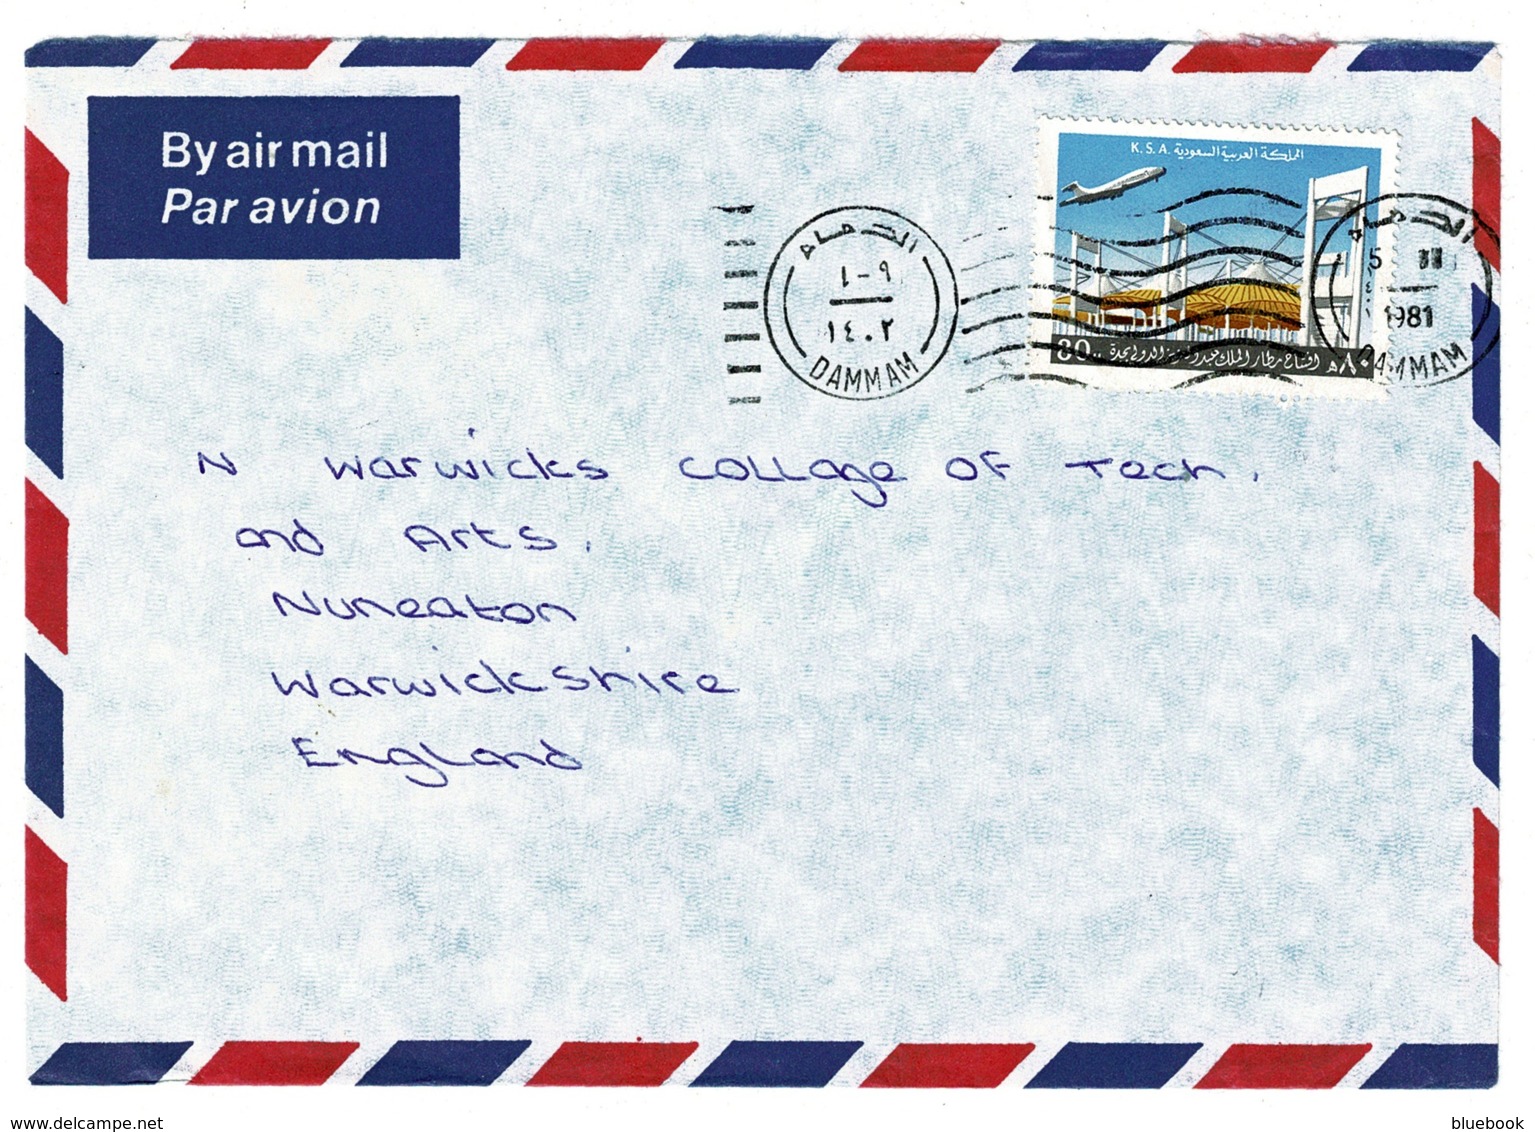 By air mail
Par avion
K.S.A. المملكة العربية السعودية
الدمام
١-٩
١٤٠٢
DAMMAM
الدمام
5
1981
DAMMAM
80 افتتاح مطار الملك عبد الدولي بجدة ٨٠
N Warwicks Collage of Tech.
and Arts.
Nuneaton
Warwickshire
England
www.delcampe.net
bluebook